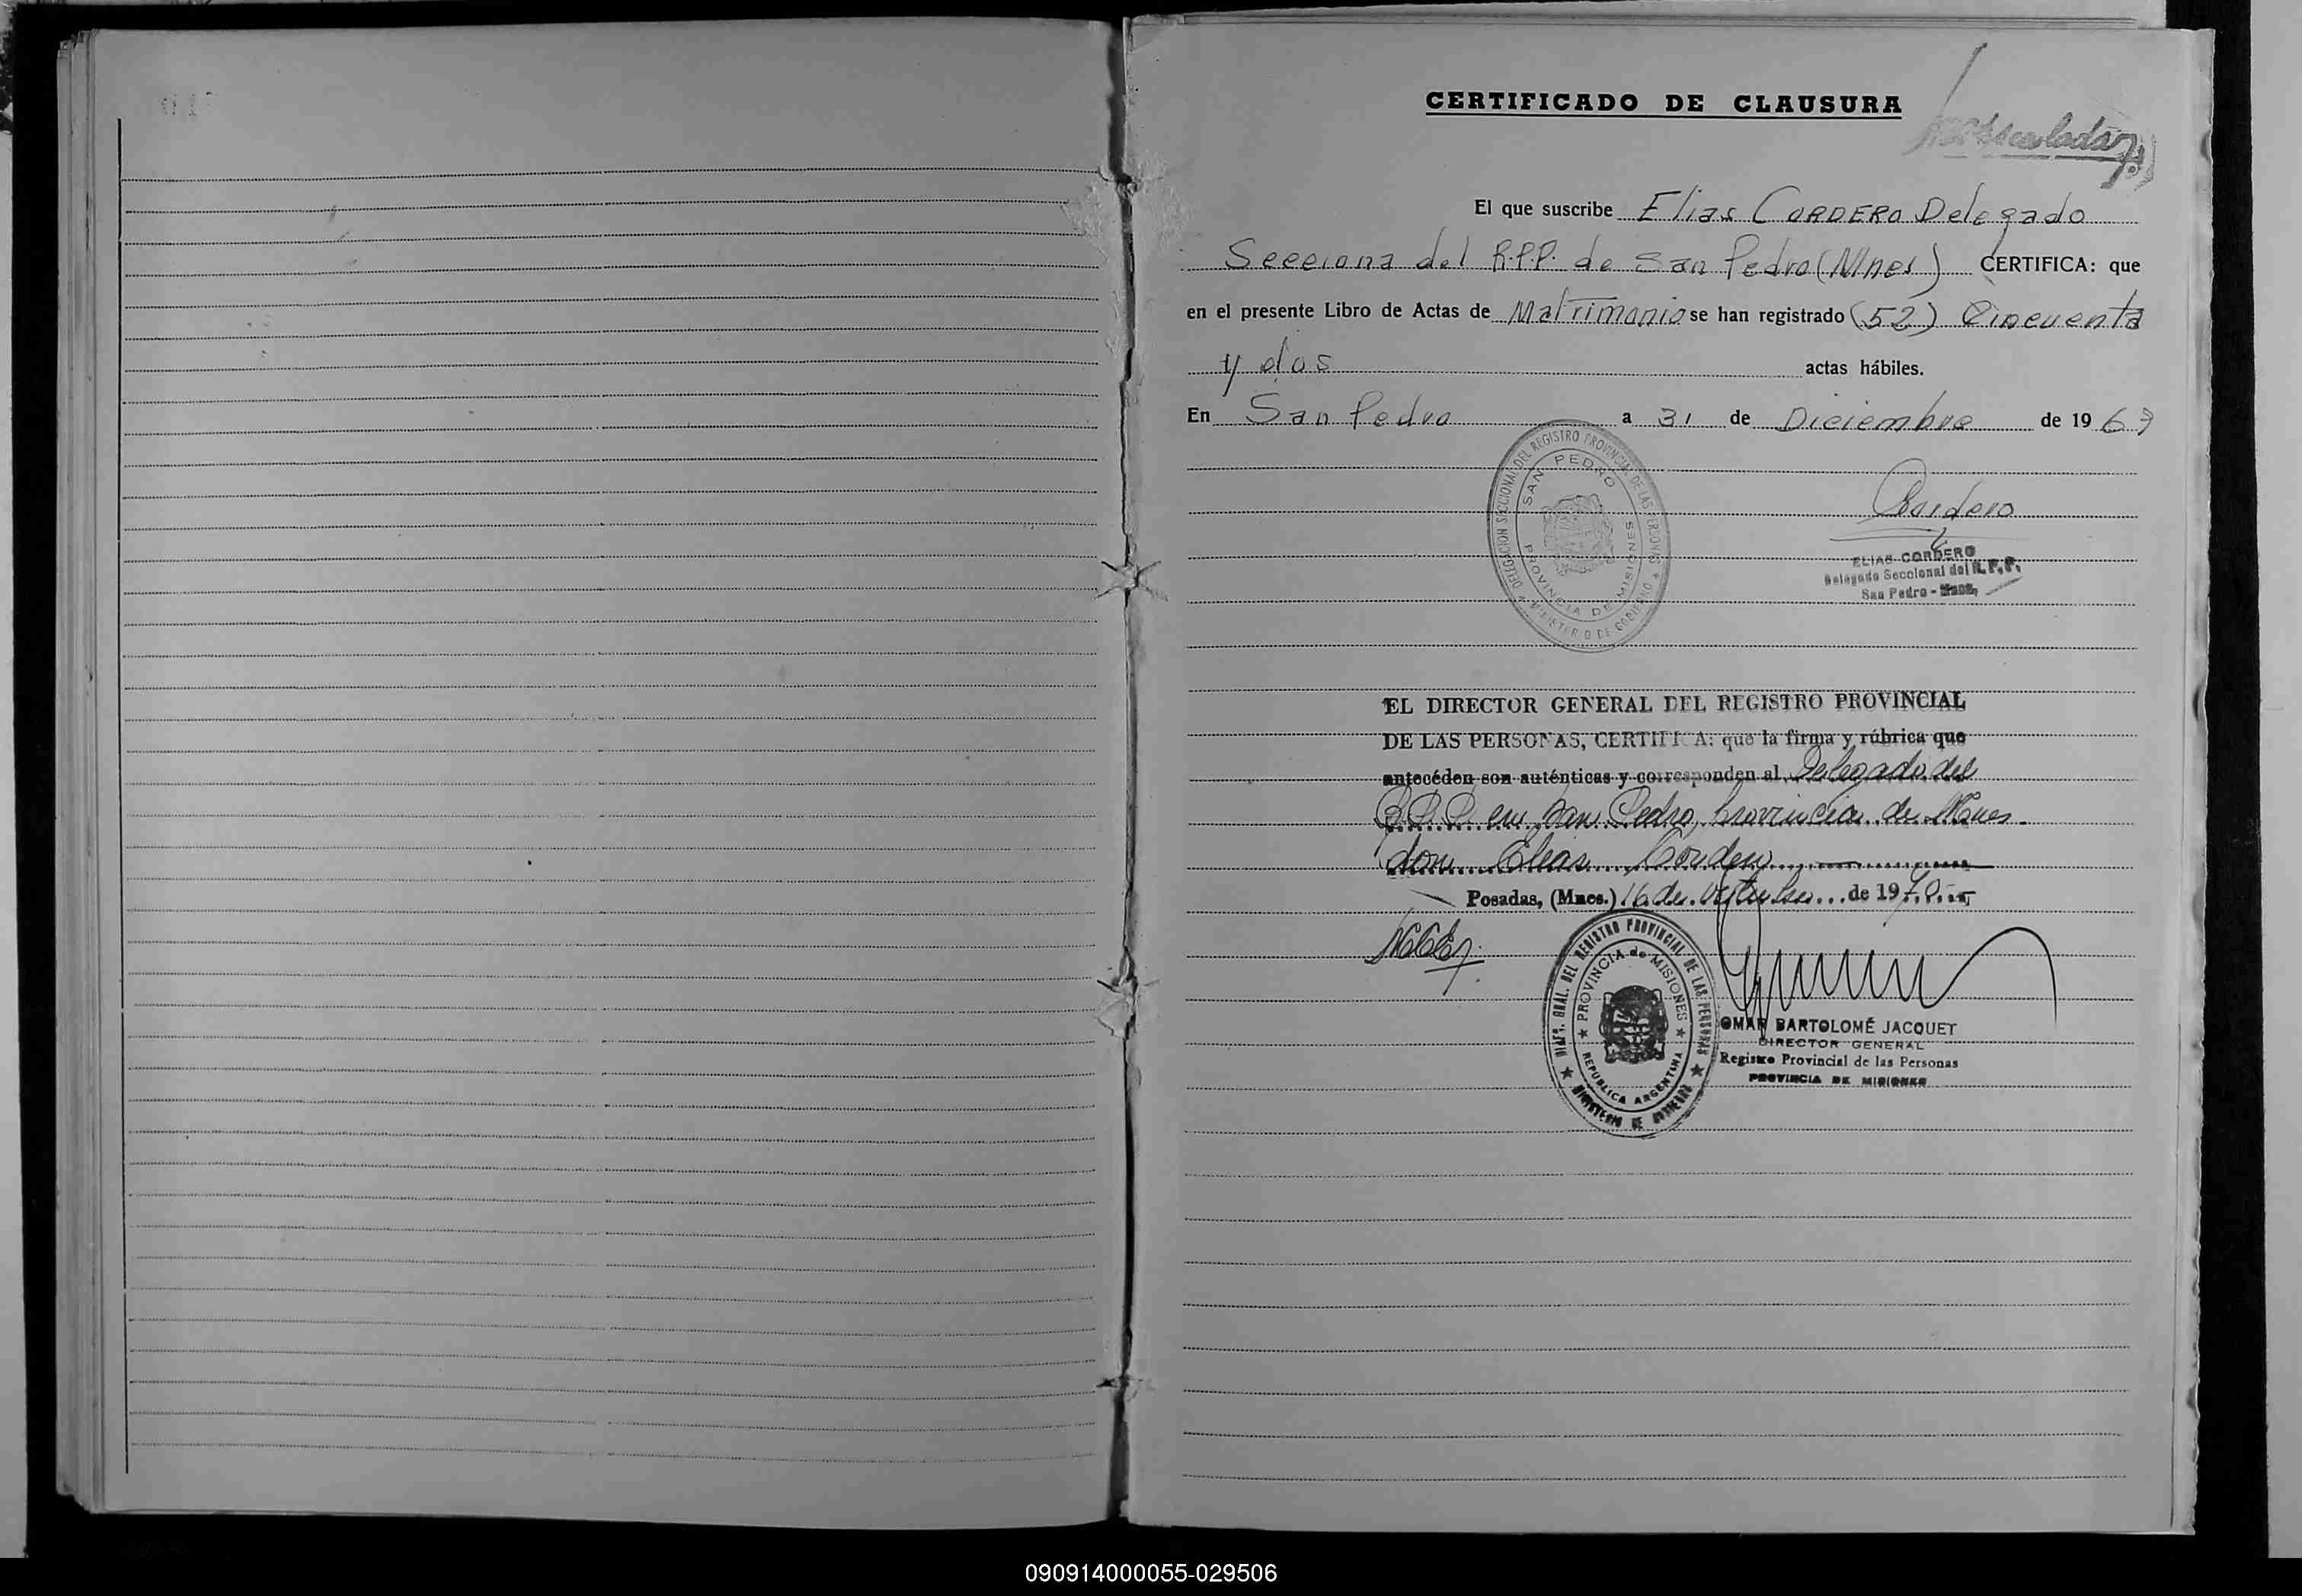 CERTIFICADO DE CLAUSURA
El que suscribe Elias CORDERO Delegado
Secciona del R.P.P. de San Pedro (Mnes) CERTIFICA: que
en el presente Libro de Actas de Matrimonio se han registrado (52) Cincuenta
y dos actas hábiles.
En San Pedro a 31 de Diciembre de 1963
DELEGACION SECCIONAL DEL REGISTRO PROVINCIAL DE LAS PERSONAS
SAN PEDRO
PROVINCIA DE MISIONES
MINISTERIO DE GOBIERNO
Cordero
ELIAS CORDERO
Delegado Seccional del R.P.P.
San Pedro - Mnes.
EL DIRECTOR GENERAL DEL REGISTRO PROVINCIAL
DE LAS PERSONAS, CERTIFICA: que la firma y rúbrica que
antecéden son auténticas y corresponden al Delegado del
R.P.P. en San Pedro, provincia de Mnes.
don Elias Cordero
Posadas, (Mnes.) 16 de Octubre de 1970
DIREC. GRAL. DEL REGISTRO PROVINCIAL DE LAS PERSONAS
PROVINCIA de MISIONES
REPUBLICA ARGENTINA
MINISTERIO DE GOBIERNO
OMAR BARTOLOMÉ JACQUET
DIRECTOR GENERAL
Registro Provincial de las Personas
PROVINCIA DE MISIONES
090914000055-029506